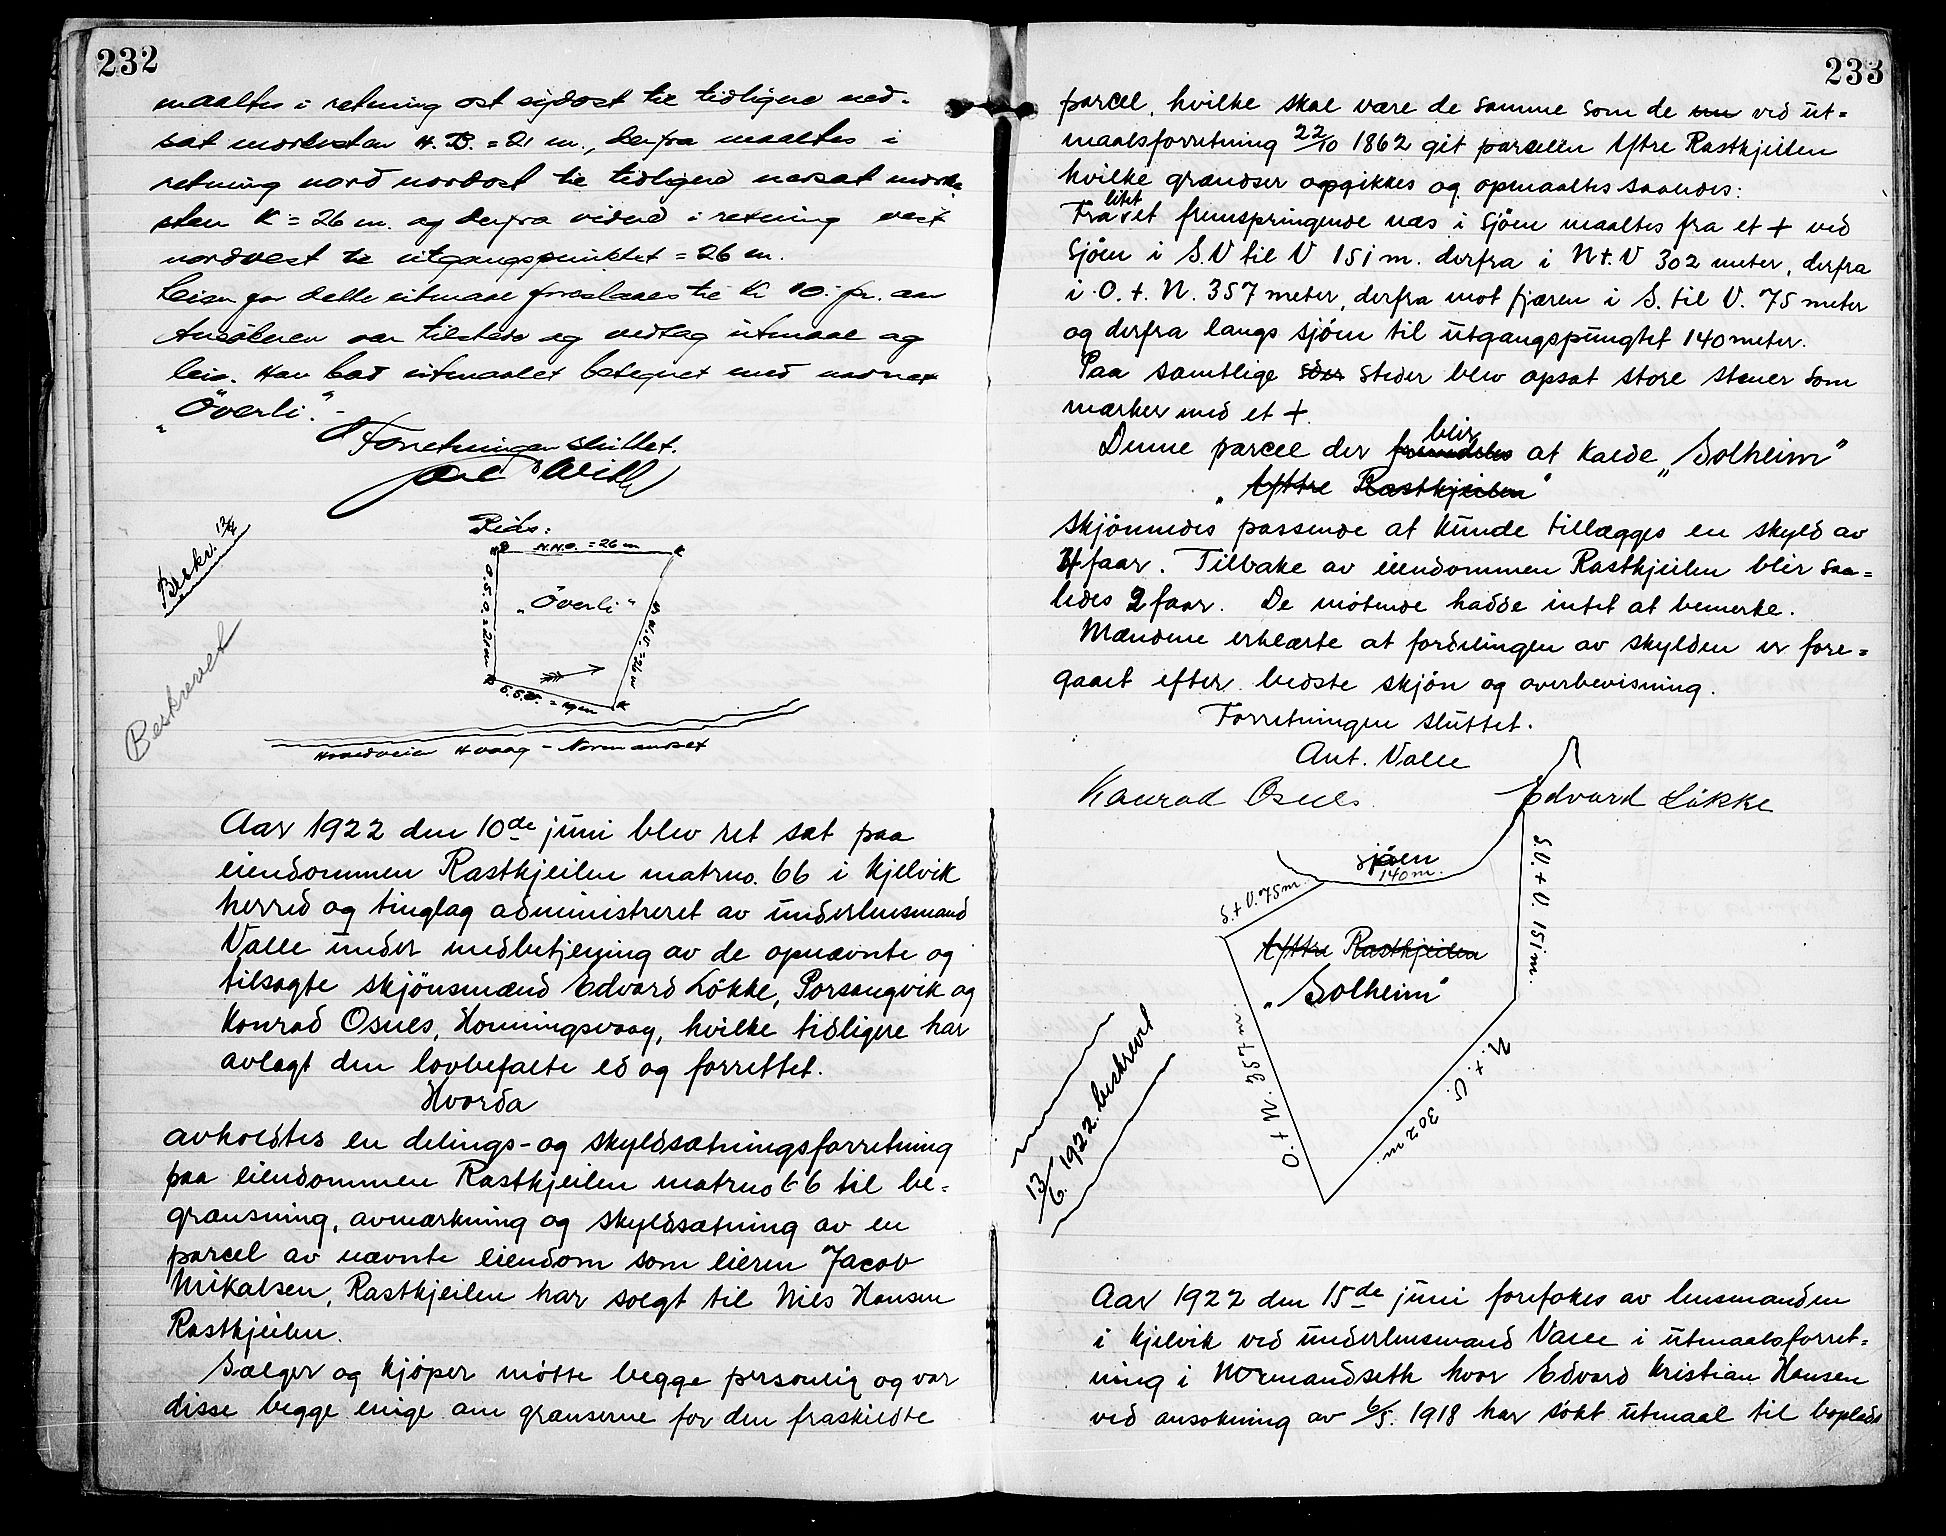 232
maaltes i retning ost sydost til tidligere ned-
sat merkesten H. B. = 21 m., derfra maaltes i
retning nord nordost til tidligere nedsat merke
sten K = 26 m. og derfra videre i retning vest
nordvest til utgangspunktet = 26 m.
Leien for dette utmaal foreslaaes til Kr 10.- pr. aar
Ansökeren var tilstede og vedtog utmaal og
leie. Han bad utmaalet betegnet med navnet
"Överli". -
Forretningen sluttet.
Beskv. 13/4
Beskrevet
Rids:
N.N.O. = 26 m
O.S.O. = 21 m
"Överli"
V.N.V. = 26 m
S.S.V. = 19 m
Hovedveien Hvaag - Normanset
Aar 1922 den 10de juni blev ret sat paa
eiendommen Rastkjeilen matrno. 66 i Kjelvik
herred og tinglag administreret av underlensmand
Valle under medbetjening av de opnævnte og
tilsagte skjönsmænd Edvard Lökke, Porsangvik og
Konrad Osnes, Honningsvaag, hvilke tidligere har
avlagt den lovbefalte ed og forrettet.
Hvorda
avholdtes en delings- og skyldsætningsforretning
paa eiendommen Rastkjeilen matrno 66 til be-
grænsning, avmærkning og skyldsætning av en
parcel av nævnte eiendom som eieren Jacob
Mikalsen, Rastkjeilen har solgt til Nils Hansen
Rastkjeilen.
Sælger og kjöper mötte begge personlig og var
disse begge enige om grænserne for den fraskildte
233
parcel, hvilke skal være de samme som de un ved ut-
maalsforretning 22/10 1862 git parcelen Yttre Rastkjeilen
hvilke grændser opgikkes og opmaaltes saaledes:
Fra et litet fremspringende næs i sjöen maaltes fra et + ved
sjöen i S.V til V 151 m. derfra i N t. V 302 meter, derfra
i O. t. N. 357 meter, derfra mot fjæren i S. til V. 75 meter
og derfra langs sjöen til utgangspungtet 140 meter.
Paa samtlige sder steder blev opsat store stener som
mærker med et +.
Denne parcel der fremdeles blir at kalde "Solheim"
"Yttre Rastkjeilen"
skjönnedes passende at kunde tillægges en skyld av
4 faar. Tilbake av eiendommen Rastkjeilen blir saa-
ledes 2 faar. De mötende hadde intet at bemerke.
Mændene erklærte at fordelingen av skylden er fore-
gaaet efter bedste skjön og overbevisning.
Forretningen sluttet.
Ant. Valle
Konrad Osnes. Edvard Lökke
sjöen
140 m.
S. t V. 75 m.
S.V. t V. 151 m.
Yttre Rastkjeilen
"Solheim"
O. t N. 357 m.
N. t. V. 302 m.
13/6. 1922. beskrevet
Aar 1922 den 15de juni foretokes av lensmanden
i Kjelvik ved underlensmand Valle i utmaalsforret-
ning i Normandseth hvor Edvard Kristian Hansen
ved ansökning av 6/5. 1918 har sökt utmaal til boplads